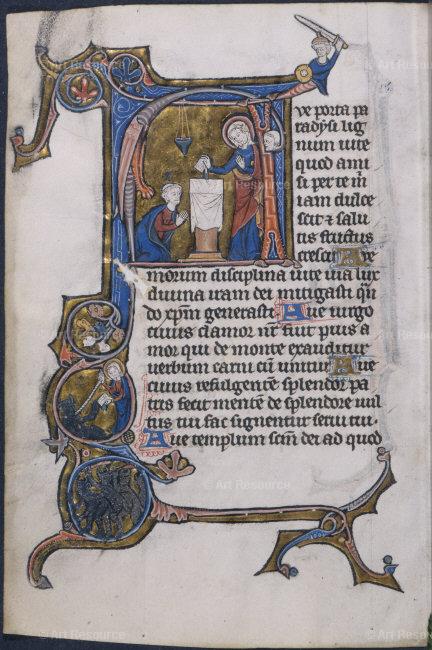 Ave porta pa
radysi lig
num uite
quod ami
si per te m̄
iam dulce
scit & salu
tis fructus
crescit Aue
morum disciplina uite uia lux
diuina iram dei mitigasti qn̄
do xp̄m generasti Aue uirgo
cuius clamor nr̄ fuit pius a
mor qui de monte exauditur
uerbum carni cū unitur Aue
cuius refulgentē splendor pa
tris fecit mentē de splendore uul
tus tui fac signentur serui tui.
Aue templum scm̄ dei ad quod
© Art Resource